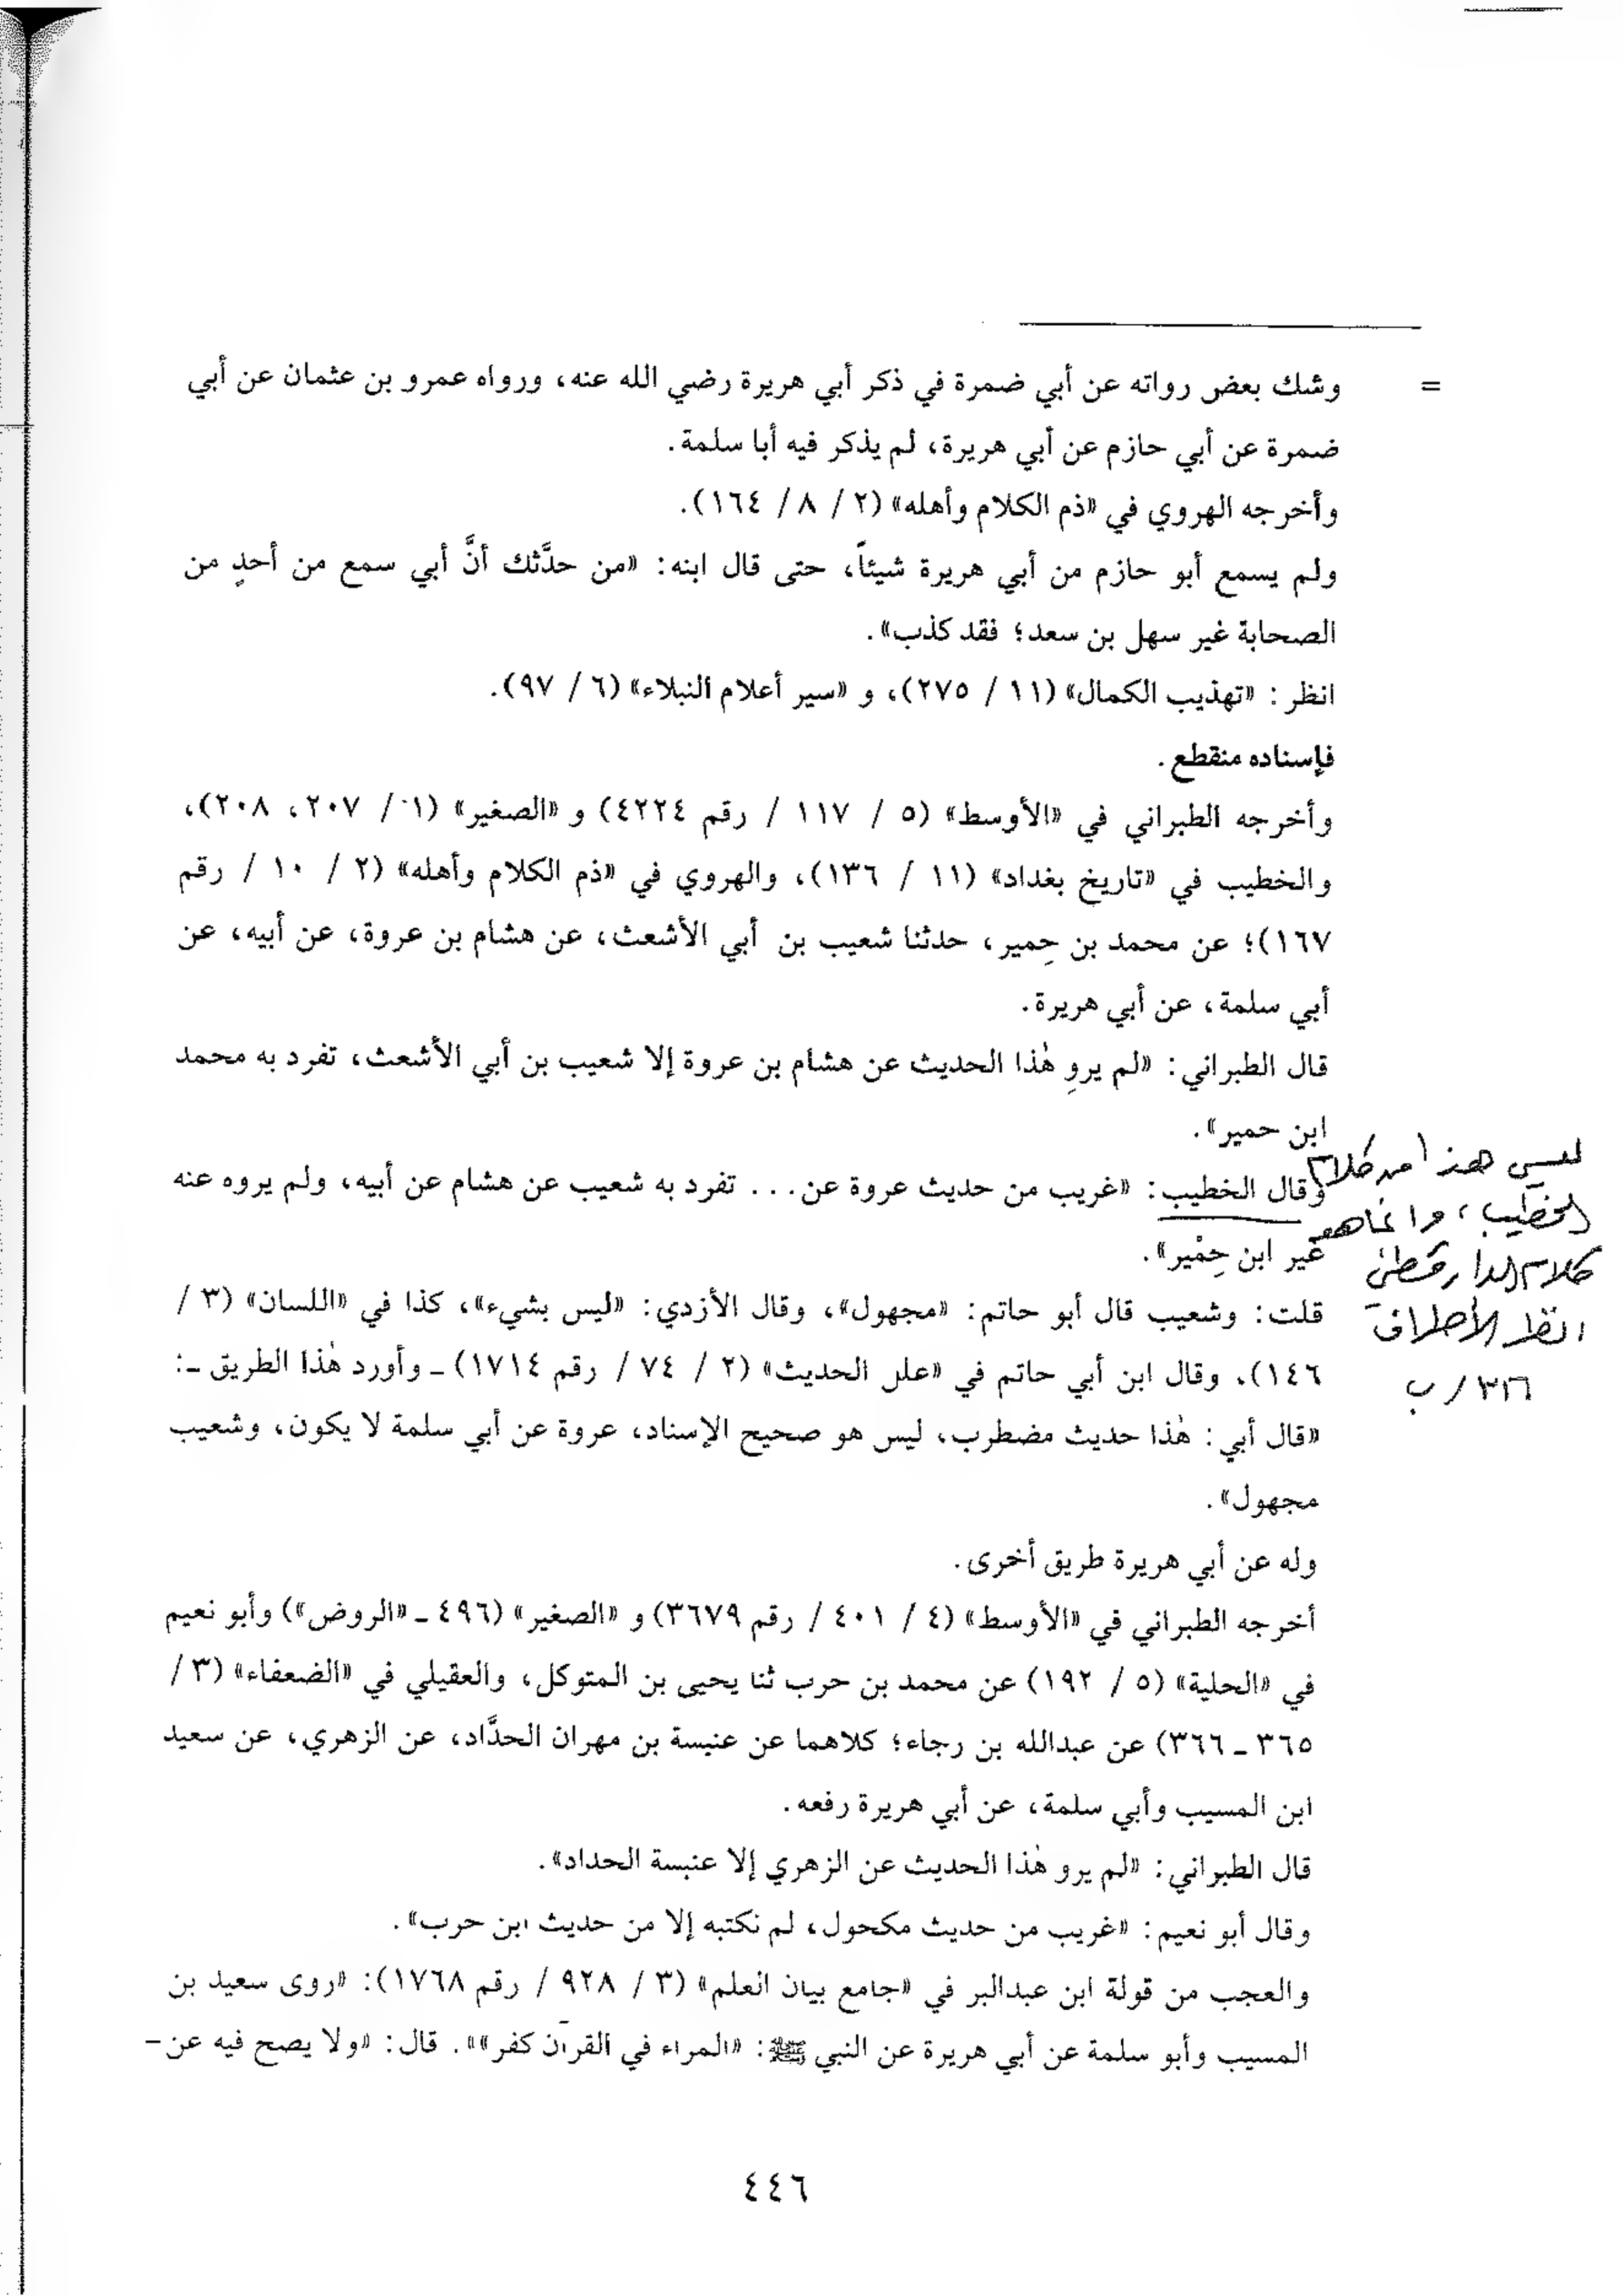 = وشك بعض رواته عن أبي ضمرة في ذكر أبي هريرة رضي الله عنه، ورواه عمرو بن عثمان عن أبي
ضمرة عن أبي حازم عن أبي هريرة، لم يذكر فيه أبا سلمة.
وأخرجه الهروي في «ذم الكلام وأهله» (٢ / ٨ / ١٦٤).
ولم يسمع أبو حازم من أبي هريرة شيئاً، حتى قال ابنه: «من حدَّثك أنَّ أبي سمع من أحدٍ من
الصحابة غير سهل بن سعد؛ فقد كذب».
انظر: «تهذيب الكمال» (١١ / ٢٧٥)، و «سير أعلام النبلاء» (٦ / ٩٧).
فإسناده منقطع.
وأخرجه الطبراني في «الأوسط» (٥ / ١١٧ / رقم ٤٢٢٤) و «الصغير» (١ / ٢٠٧، ٢٠٨)،
والخطيب في «تاريخ بغداد» (١١ / ١٣٦)، والهروي في «ذم الكلام وأهله» (٢ / ١٠ / رقم
١٦٧)؛ عن محمد بن حِمير، حدثنا شعيب بن أبي الأشعث، عن هشام بن عروة، عن أبيه، عن
أبي سلمة، عن أبي هريرة.
قال الطبراني: «لم يروِ هٰذا الحديث عن هشام بن عروة إلا شعيب بن أبي الأشعث، تفرد به محمد
ابن حمير».
وقال الخطيب: «غريب من حديث عروة عن... تفرد به شعيب عن هشام عن أبيه، ولم يروه عنه
غير ابن حِمْير».
ليس هذا من كلام
الخطيب، وإنما هو
كلام الدارقطني
انظر الأطراف
٣٢٦/ ب
قلت: وشعيب قال أبو حاتم: «مجهول»، وقال الأزدي: «ليس بشيء»، كذا في «اللسان» (٣ /
١٤٦). وقال ابن أبي حاتم في «علل الحديث» (٢ / ٧٤ / رقم ١٧١٤) ـ وأورد هٰذا الطريق ـ:
«قال أبي: هٰذا حديث مضطرب، ليس هو صحيح الإسناد، عروة عن أبي سلمة لا يكون، وشعيب
مجهول».
وله عن أبي هريرة طريق أخرى.
أخرجه الطبراني في «الأوسط» (٤ / ٤٠١ / رقم ٣٦٧٩) و «الصغير» (٤٩٦ ـ «الروض») وأبو نعيم
في «الحلية» (٥ / ١٩٢) عن محمد بن حرب ثنا يحيى بن المتوكل، والعقيلي في «الضعفاء» (٣ /
٣٦٥ ـ ٣٦٦) عن عبدالله بن رجاء؛ كلاهما عن عنبسة بن مهران الحدَّاد، عن الزهري، عن سعيد
ابن المسيب وأبي سلمة، عن أبي هريرة رفعه.
قال الطبراني: «لم يرو هٰذا الحديث عن الزهري إلا عنبسة الحداد».
وقال أبو نعيم: «غريب من حديث مكحول، لم نكتبه إلا من حديث ابن حرب».
والعجب من قولة ابن عبدالبر في «جامع بيان العلم» (٣ / ٩٢٨ / رقم ١٧٦٨): «روى سعيد بن
المسيب وأبو سلمة عن أبي هريرة عن النبي ﷺ: «المراء في القرآن كفر»». قال: «ولا يصح فيه عن=
٤٤٦